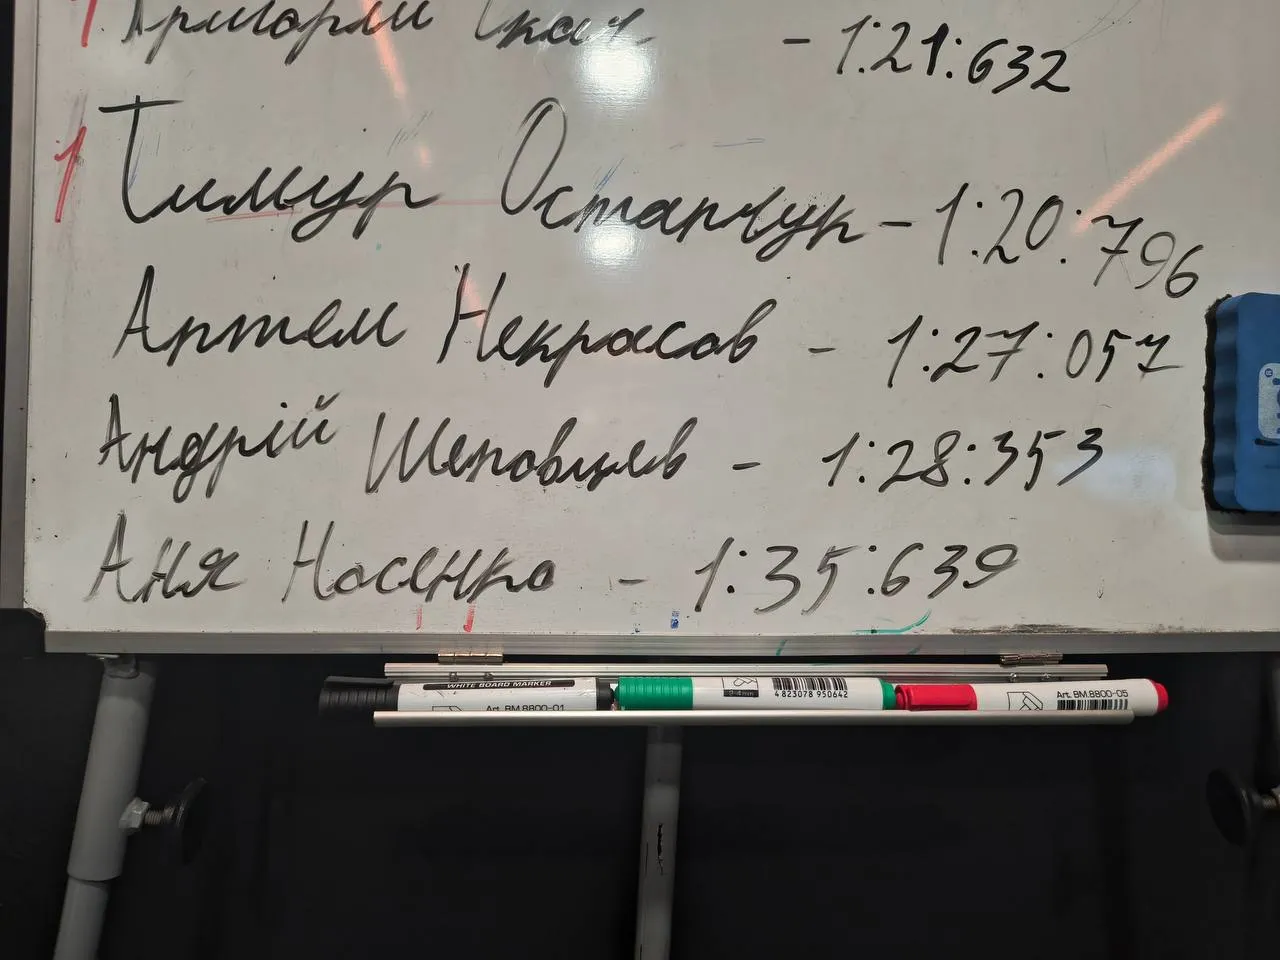 - 1:21:632
1 Тимур Остапчук - 1:20:796
Артем Некрасов - 1:27:057
Андрій Шеповцев - 1:28:353
Аня Носенко - 1:35:639
WHITE BOARD MARKER
Art. BM.8800-01
2-4 mm
4 823078 950642
Art. BM.8800-05